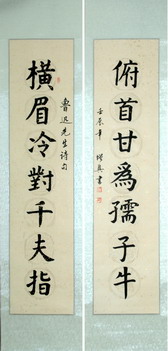 橫眉冷對千夫指
魯迅先生詩句
俯首甘為孺子牛
壬辰年
書